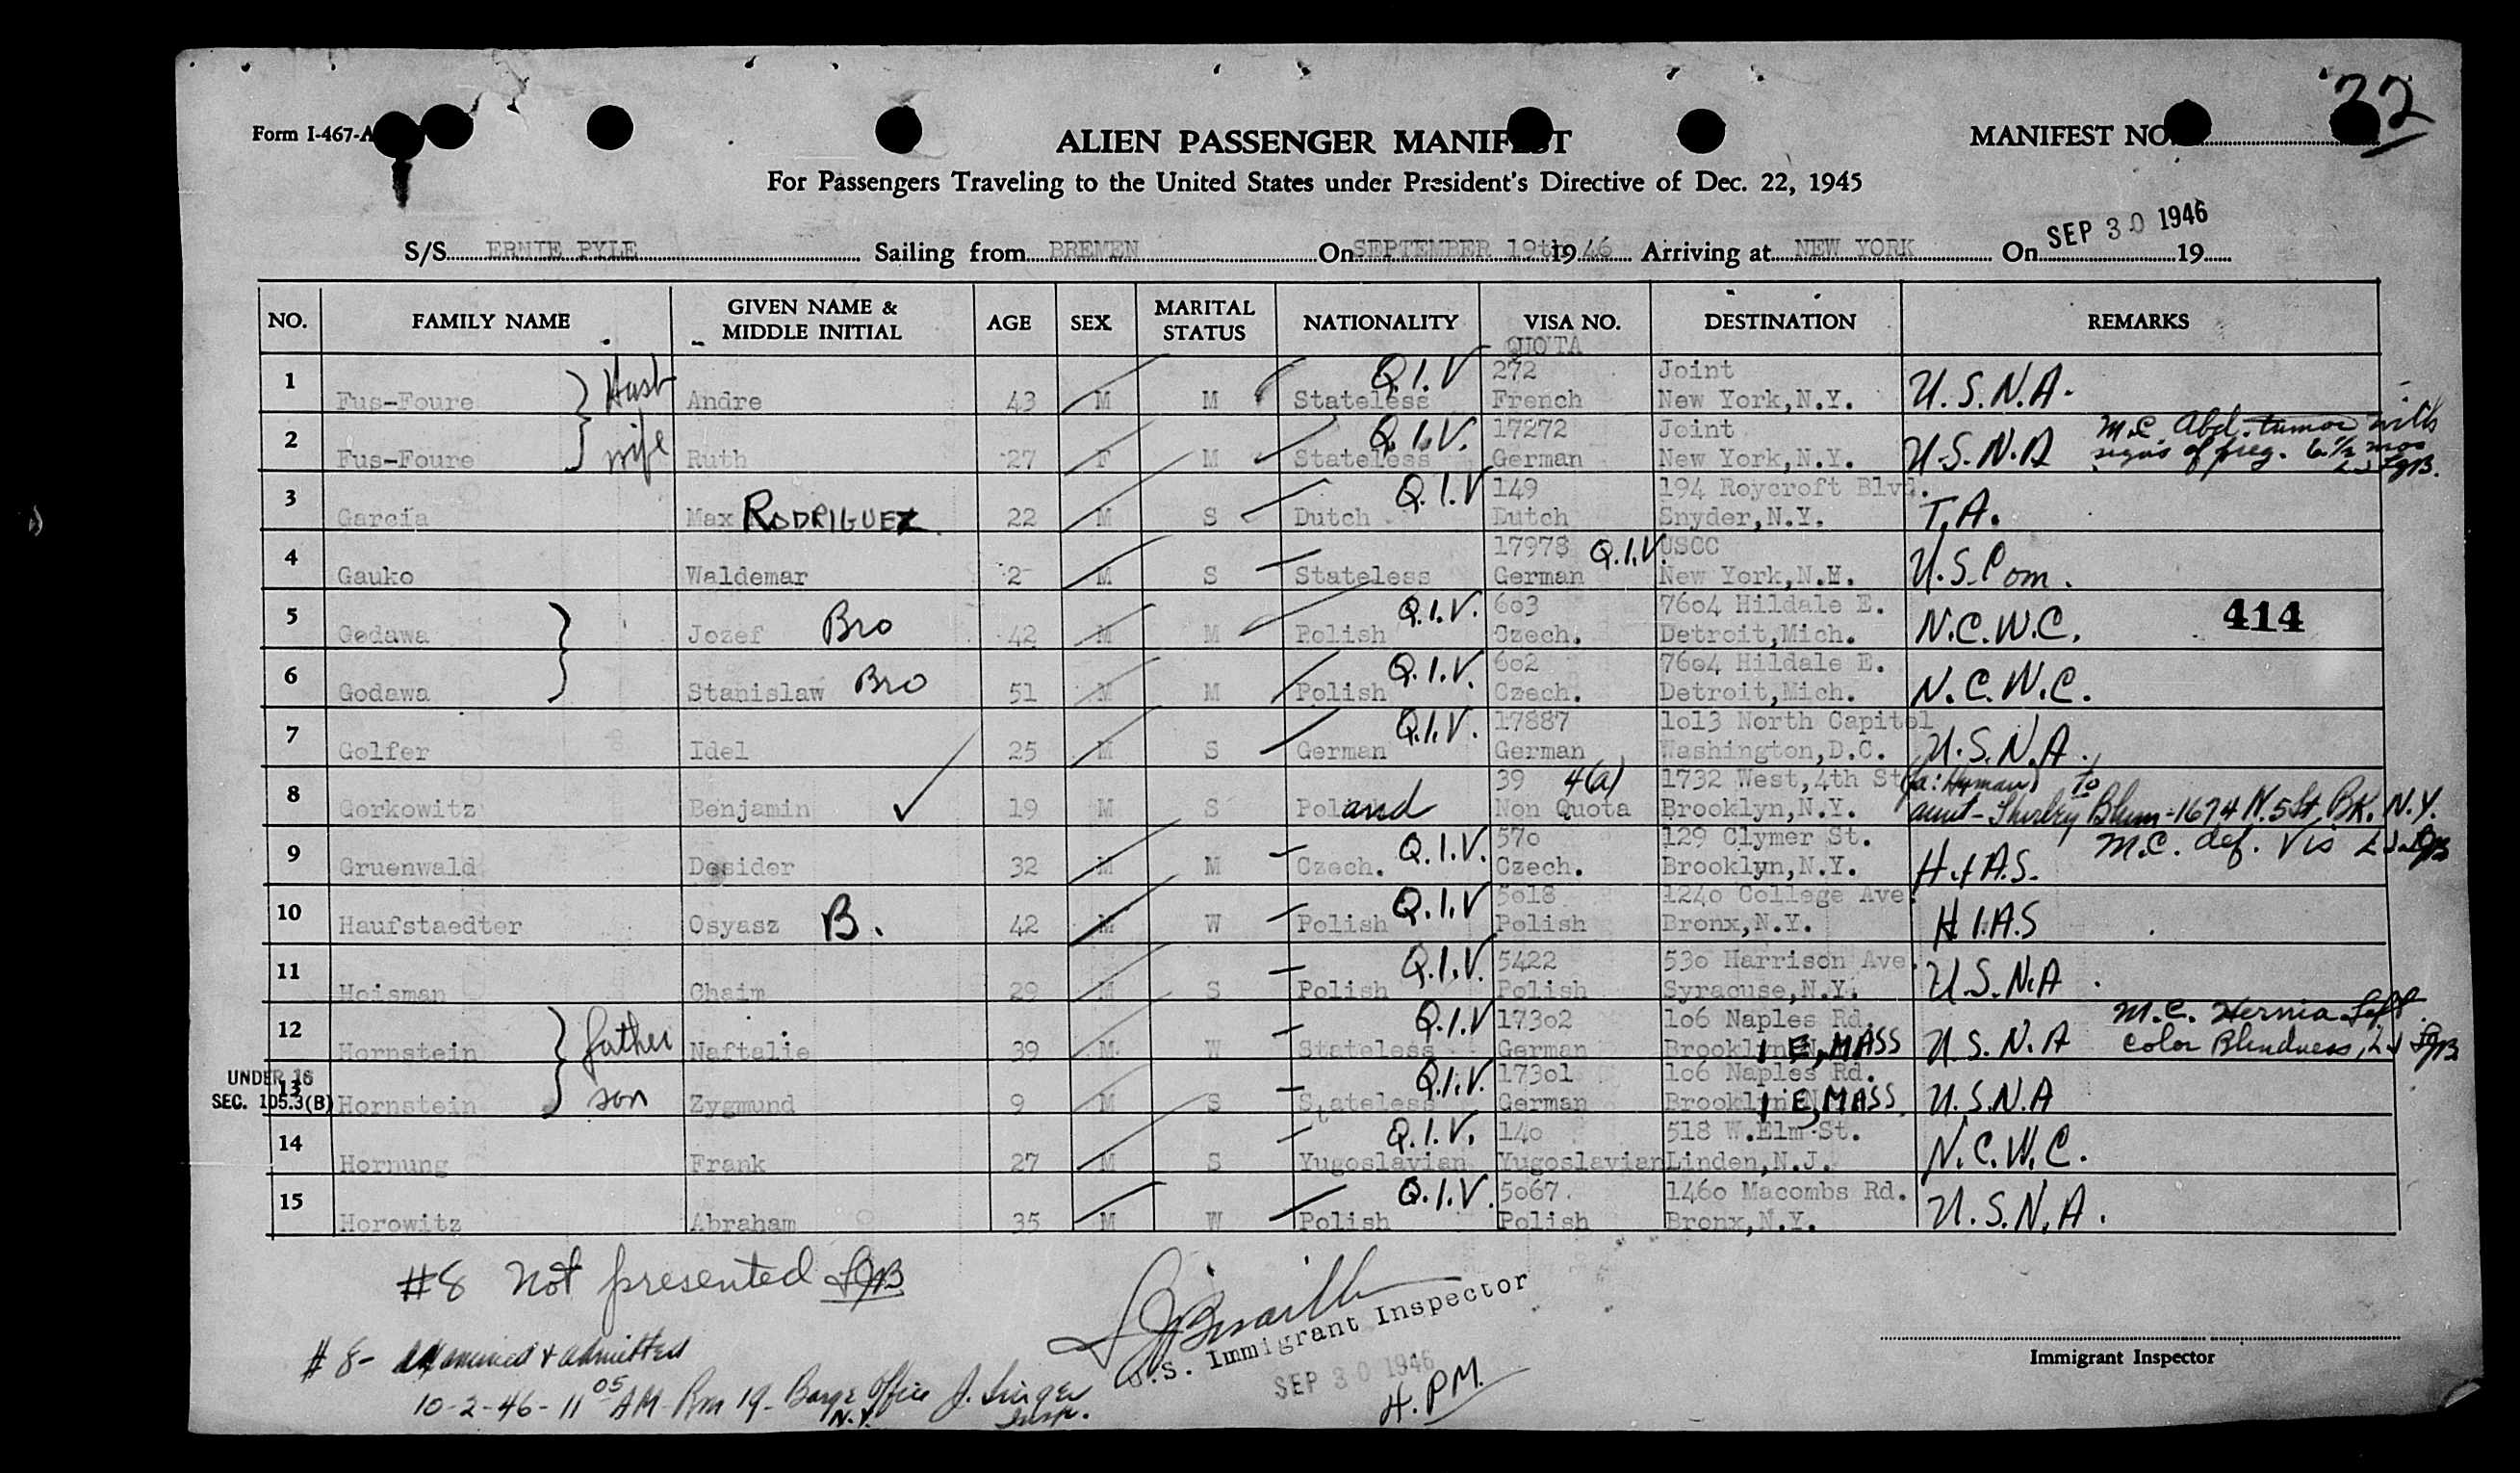 22
Form I-467-A
ALIEN PASSENGER MANIFEST
MANIFEST NO.
For Passengers Traveling to the United States under President's Directive of Dec. 22, 1945
S/S ERNIE PYLE Sailing from BREMEN On SEPTEMBER 19th 19 46 Arriving at NEW YORK On SEP 30 1946 19
NO. FAMILY NAME GIVEN NAME & MIDDLE INITIAL AGE SEX MARITAL STATUS NATIONALITY VISA NO. DESTINATION REMARKS
QUOTA
1 Fus-Foure Husb Andre 43 M M Stateless Q.I.V 272 French Joint New York,N.Y. U.S.N.A.
2 Fus-Foure wife Ruth 27 F M Stateless Q.I.V. 17272 German Joint New York,N.Y. U.S.N.A M.C. Abd. tumor with signs of preg. 6 1/2 mos
3 Garcia Max RODRIGUEZ 22 M S Dutch Q.I.V 149 Dutch 194 Roycroft Blvd. Snyder,N.Y. T.A.
4 Gauko Waldemar 2 M S Stateless 17978 German Q.I.V. USCC New York,N.Y. U.S. Com.
5 Godawa Jozef Bro 42 M M Polish Q.I.V. 603 Czech. 7604 Hildale E. Detroit,Mich. N.C.W.C. 414
6 Godawa Stanislaw Bro 51 M M Polish Q.I.V. 602 Czech. 7604 Hildale E. Detroit,Mich. N.C.W.C.
7 Golfer Idel 25 M S German Q.I.V. 17887 German 1013 North Capitol Washington,D.C. U.S.N.A.
8 Gorkowitz Benjamin 19 M S Poland 39 4(a) Non Quota 1732 West,4th St Brooklyn,N.Y. (fa: Hyman) to aunt - Shirley Blum - 1674 W. 5 St Bk. N.Y.
9 Gruenwald Desider 32 M M Czech. Q.I.V. 570 Czech. 129 Clymer St. Brooklyn,N.Y. H.I.A.S. M.C. def. Vis
10 Haufstaedter Osyasz B. 42 M W Polish Q.I.V 5018 Polish 1240 College Ave. Bronx,N.Y. H.I.A.S
11 Hoisman Chaim 29 M S Polish Q.I.V. 5422 Polish 530 Harrison Ave. Syracuse,N.Y. U.S.N.A
12 Hornstein father Naftalie 39 M W Stateless Q.I.V 17302 German 106 Naples Rd. BrooklIE, MASS U.S.N.A M.C. Hernia Left Color Blindness,
UNDER 16 SEC. 105.3(B)
13 Hornstein son Zygmund 9 M S Stateless Q.I.V. 17301 German 106 Naples Rd. BrooklIE, MASS. U.S.N.A
14 Hornung Frank 27 M S Yugoslavian Q.I.V. 140 Yugoslavian 518 W.Elm St. Linden,N.J. N.C.W.C.
15 Horowitz Abraham 35 M W Polish Q.I.V. 5067. Polish 1460 Macombs Rd. Bronx,N.Y. U.S.N.A.
#8 Not presented
U.S. Immigrant Inspector
SEP 30 1946
4. PM.
#8- examined & admitted
10-2-46-11 05 AM-Rm 19-Barge Office N.Y. J. Singer Insp.
Immigrant Inspector